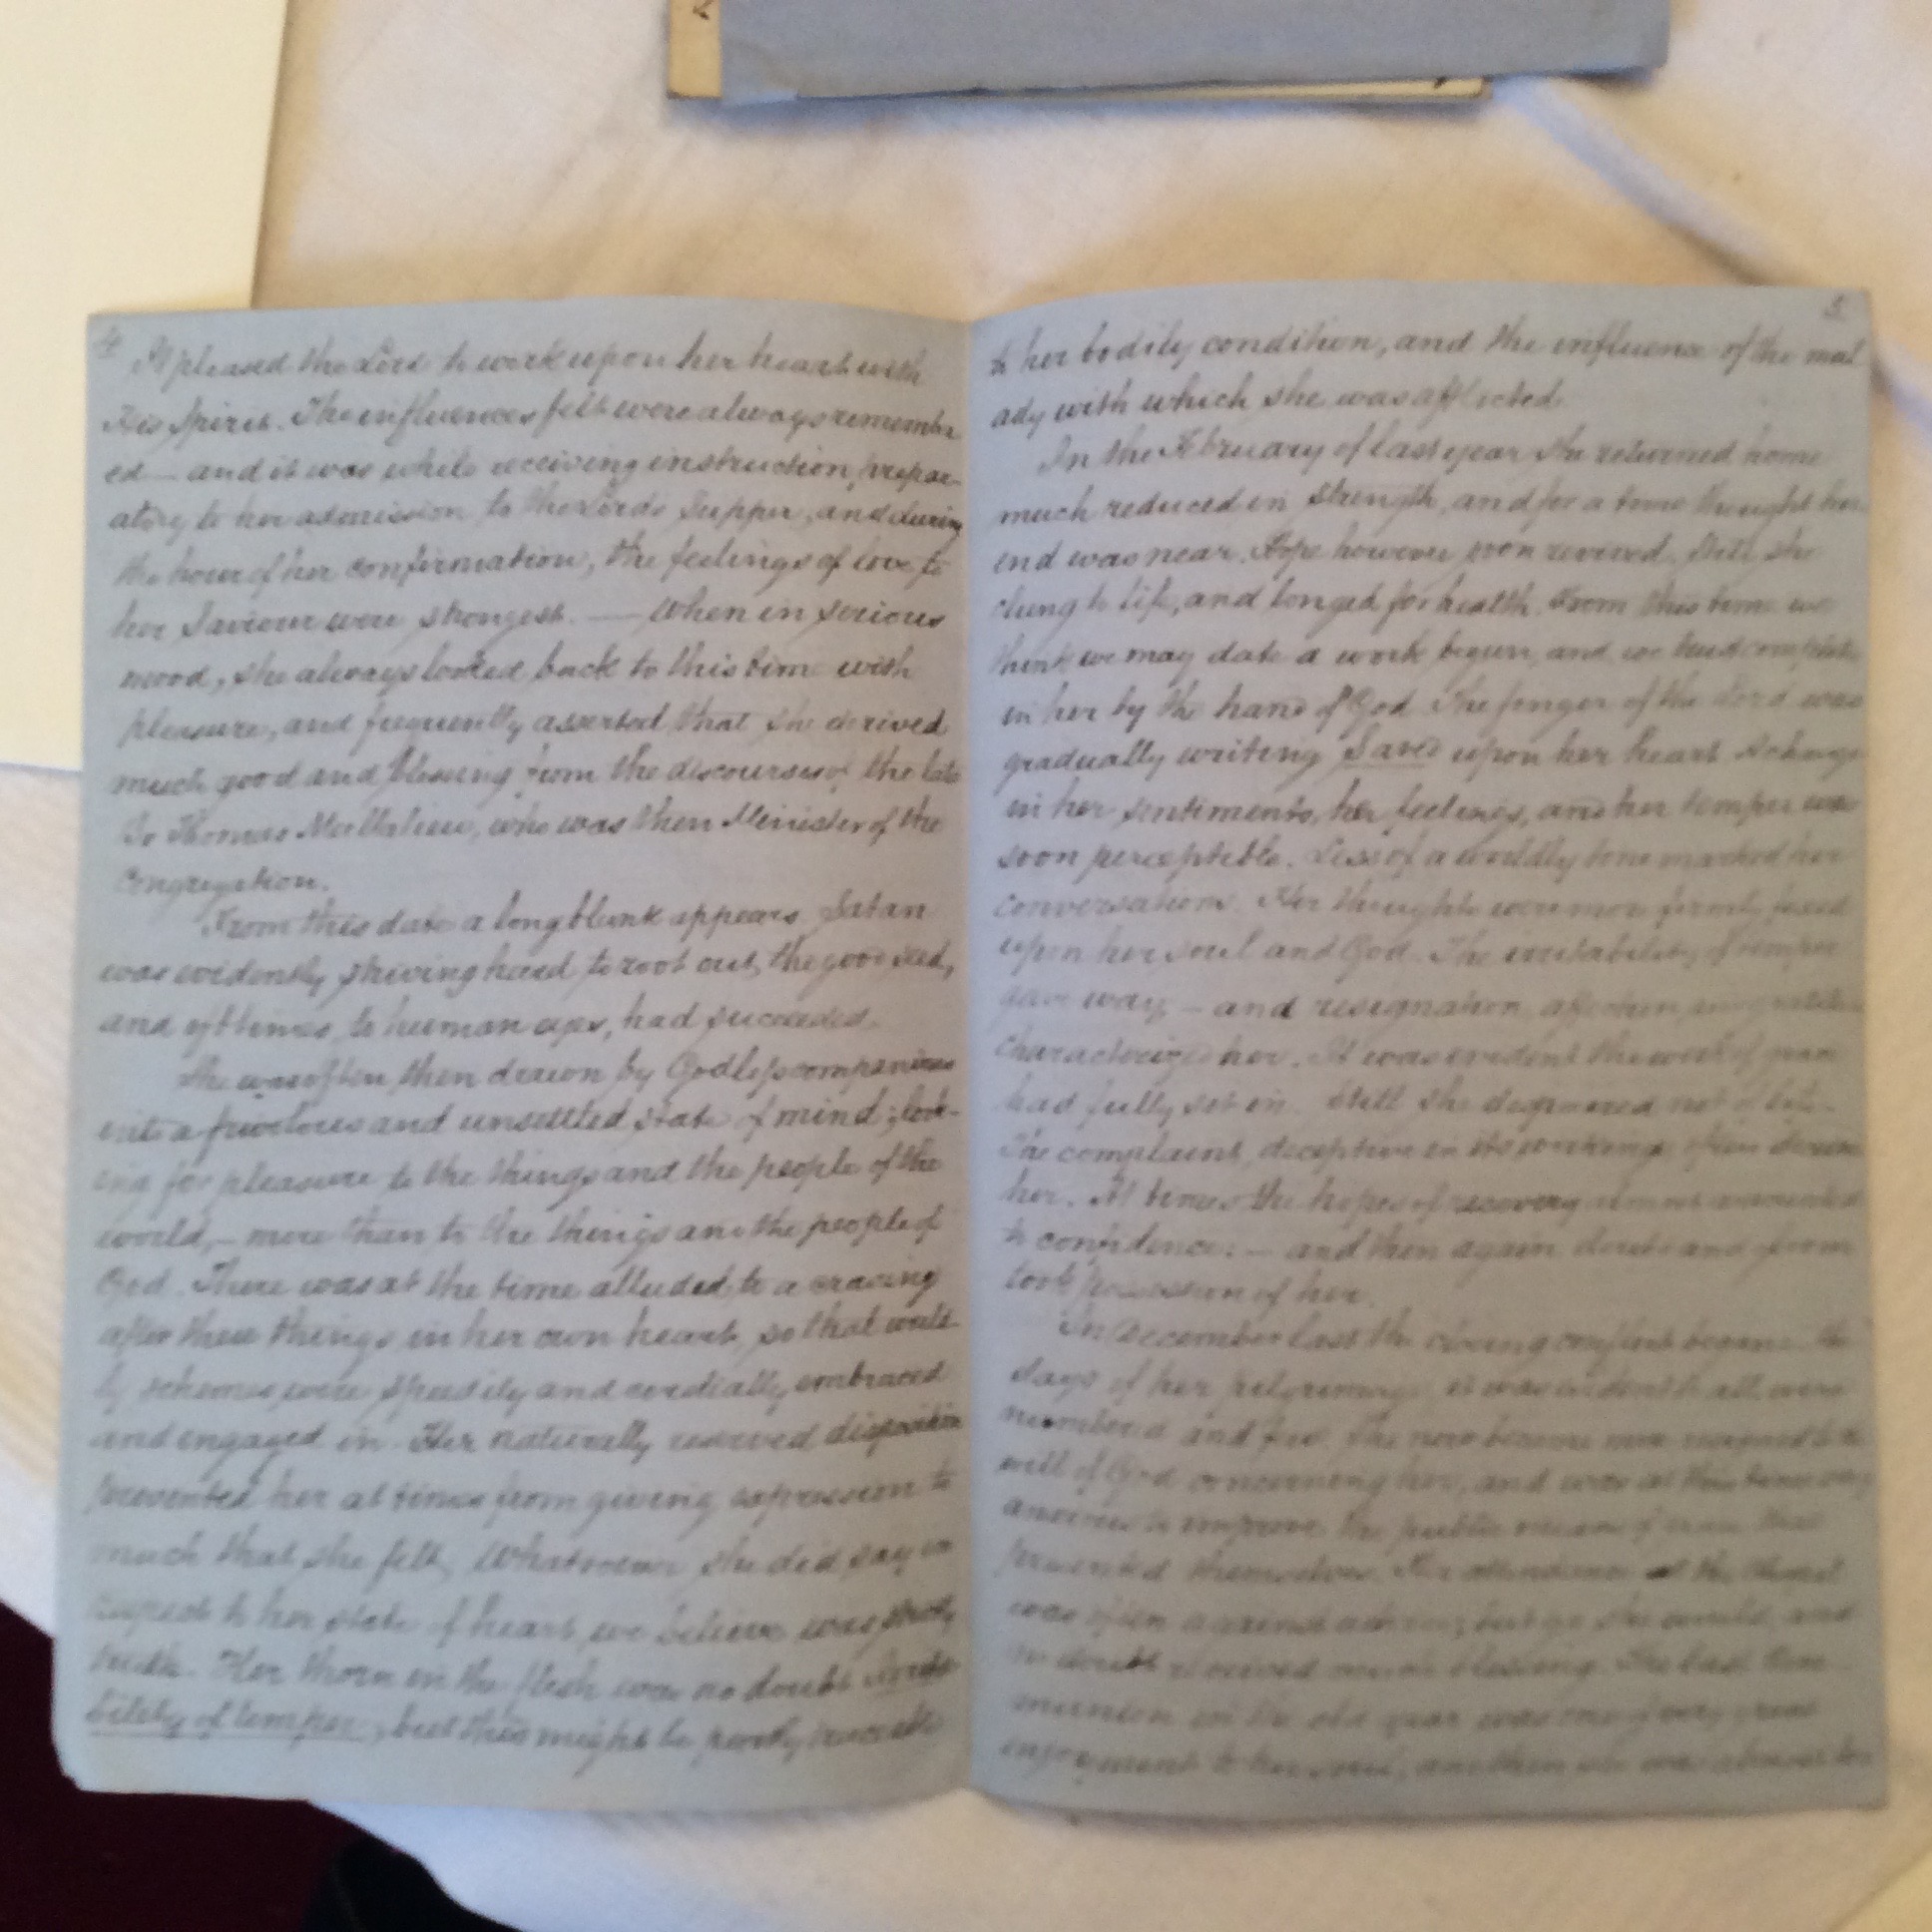 4
It pleased the Lord to work upon her heart with
His Spirit. The influences felt were always remember
ed — and it was while receiving instruction, prepar-
atory to her admission to the Lords Supper, and during
the hour of her confirmation, the feelings of love to
her Saviour were strongest. — When in serious
mood, she always looked back to this time with
pleasure, and frequently asserted that she derived
much good and blessing from the discourses of the late
Br Thomas Mallalieu, who was then Minister of the
Congregation.
From this date a long blank appears. Satan
was evidently striving hard to root out the good seed,
and oft times, to human eyes, had succeeded.
She was often then drawn by Godless companions
into a frivolous and unsettled state of mind; look-
ing for pleasure to the things and the people of the
world, — more than to the things and the people of
God. There was at the time alluded to a craving
after these things in her own heart, so that world-
ly schemes were speedily and cordially embraced
and engaged in. Her naturally reserved disposition
prevented her at times from giving expression to
much that she felt. Whatsoever she did say in
respect to her state of heart, we believe was strictly
truth. Her thorn in the flesh was no doubt irrita-
bility of temper, but this might be partly traceable
5
to her bodily condition, and the influence of the mal
ady with which she was afflicted.
In the February of last year she returned home
much reduced in strength, and for a time thought her
end was near. Hope however soon revived. Still she
clung to life, and longed for health. From this time we
think we may date a work begun, and we trust completed
in her by the hand of God. The finger of the Lord was
gradually writing Saved upon her heart. A change
in her sentiments, her feelings, and her temper was
soon perceptible. Less of a worldly tone marked her
conversations. Her thoughts were more firmly fixed
upon her soul and God. The irritability of temper
gave way — and resignation, affection, and gratitude
characterized her. It was evident the work of grace
had fully set in. Still she despaired not of life.
The complaint, deceptive in its workings often deceived
her. At times the hopes of recovery almost amounted
to confidence: — and then again doubt and gloom
took possession of her.
In December last the closing conflict began. The
days of her pilgrimage, it was evident to all, were
numbered and few. She now became more resigned to the
will of God concerning her, and was at this time very
anxious to improve the public means of grace that
presented themselves. Her attendance at the Chapel
was often against advice, but go she would, and
no doubt received much blessing. The last Com-
munion in the old year was one of very great
enjoyment to her soul, and then she was almost